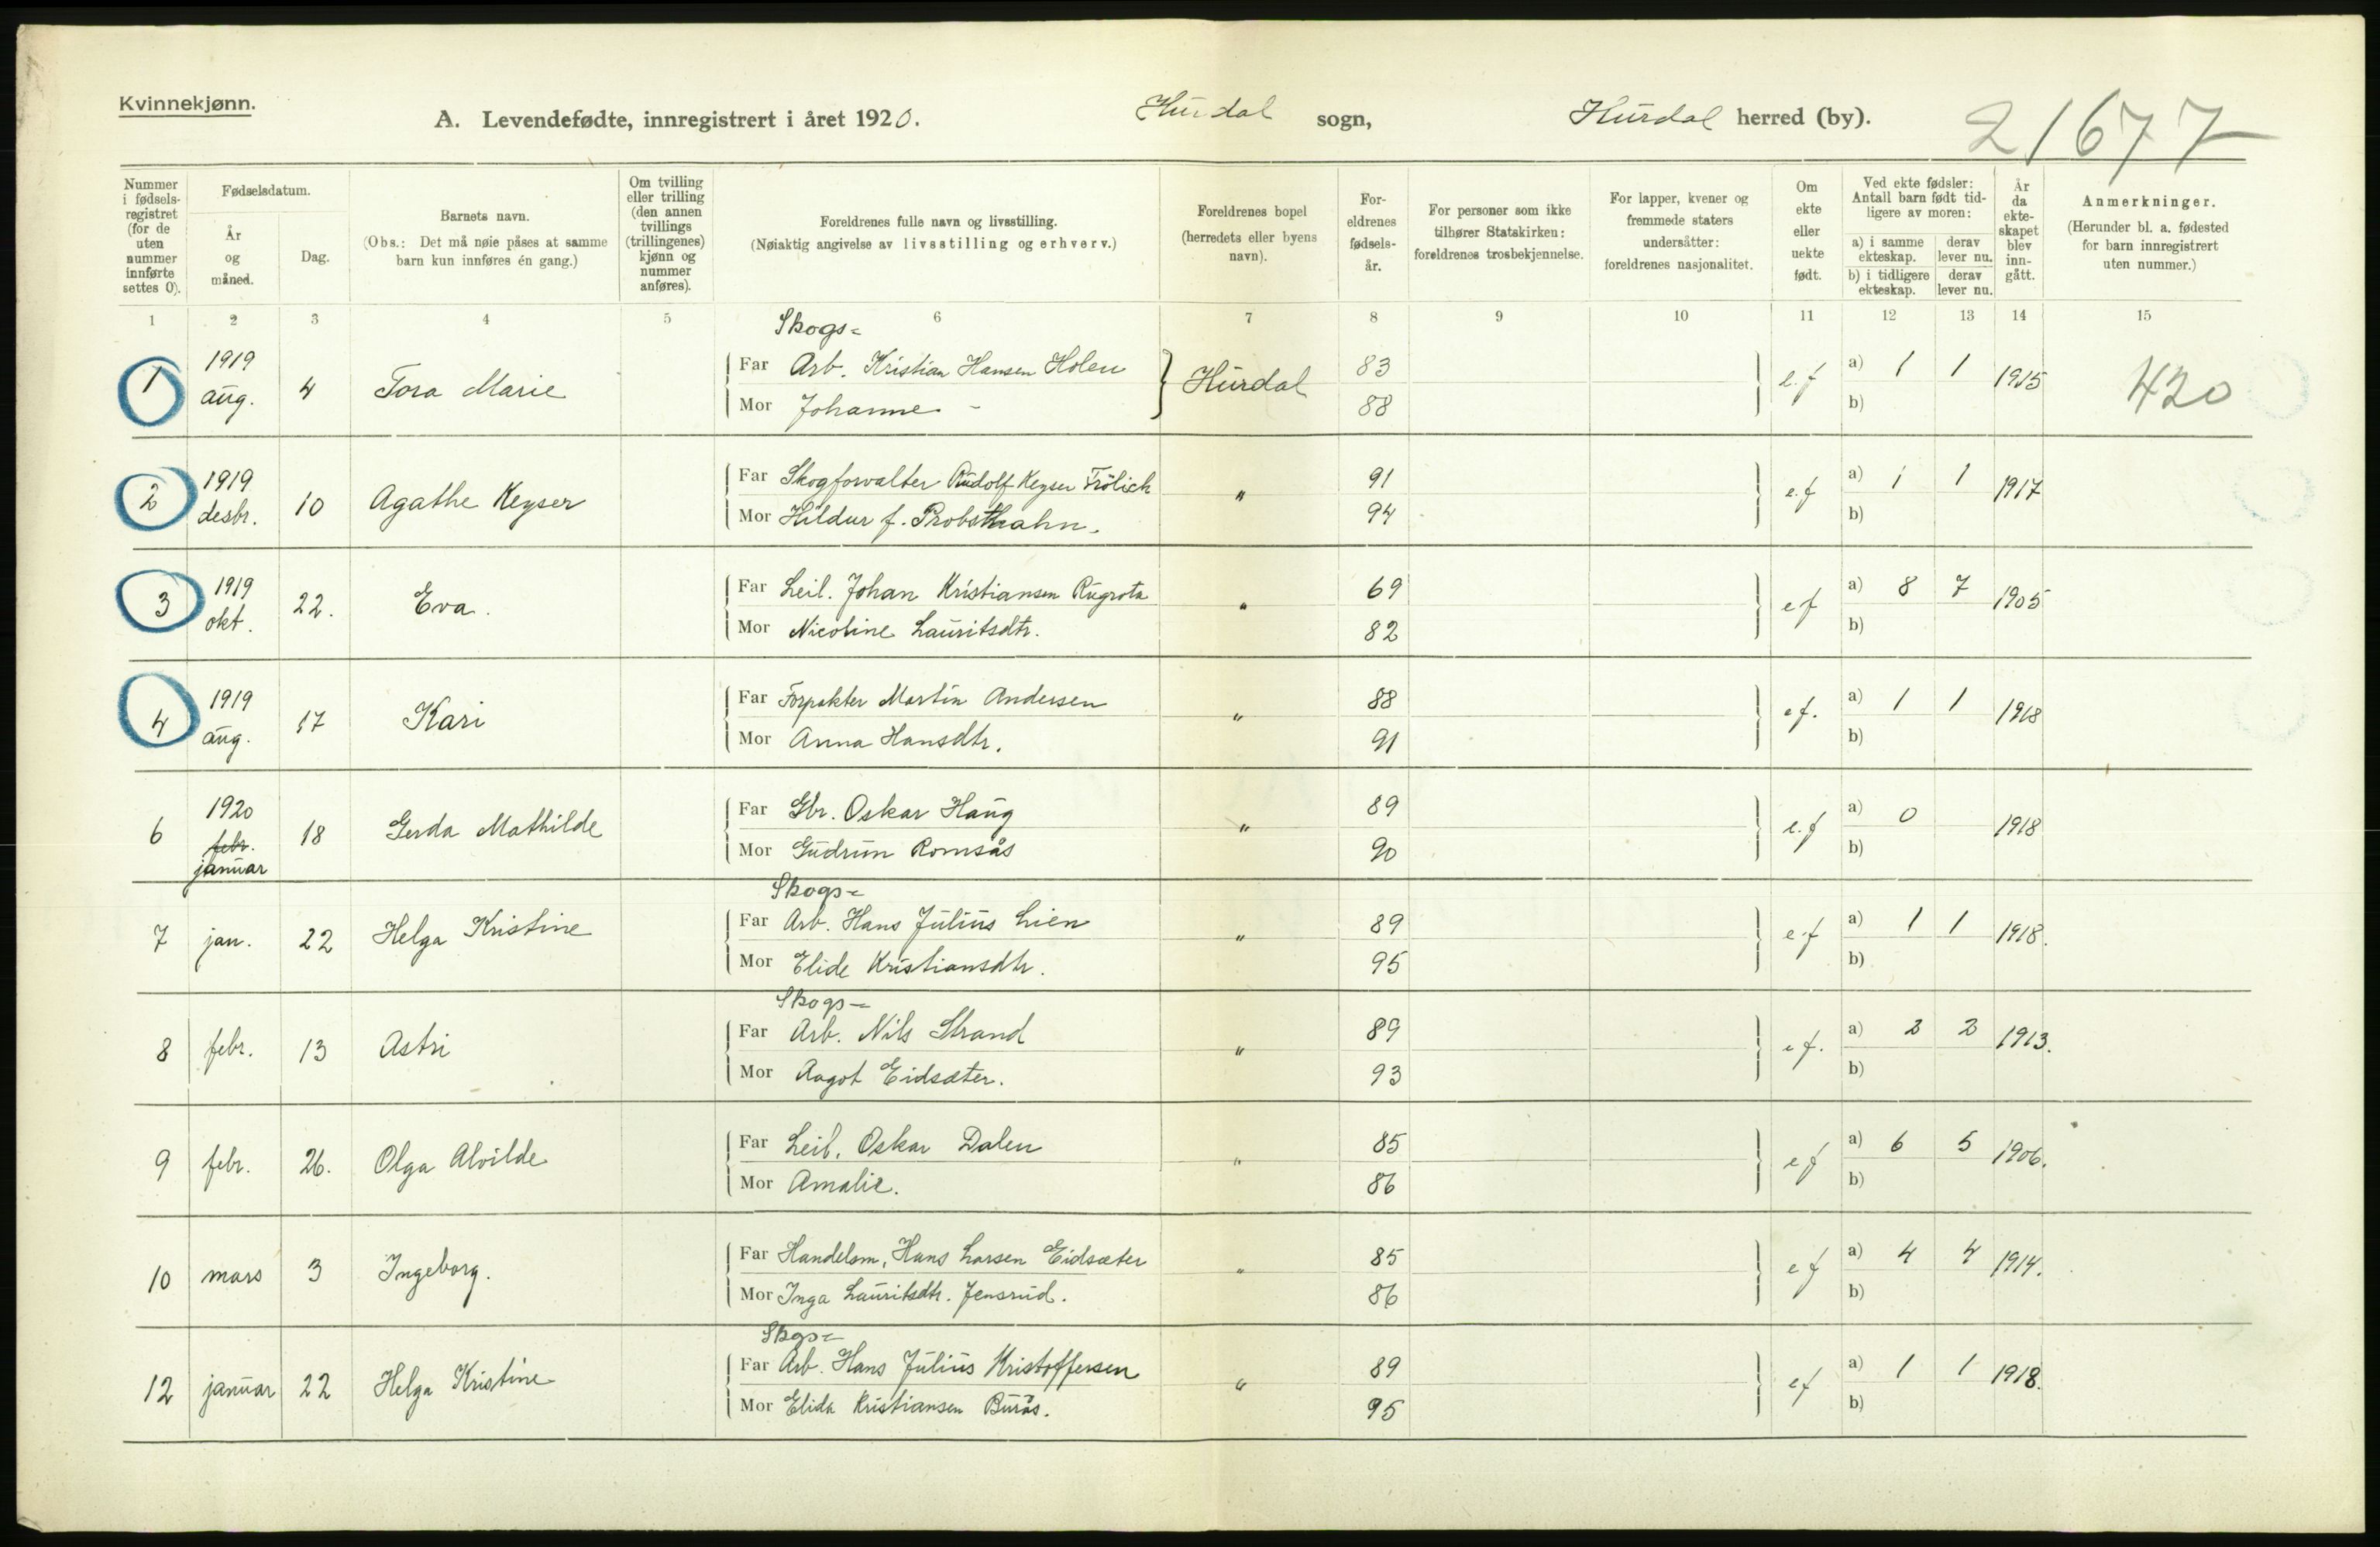 Kvinnekjønn.
A. Levendefødte, innregistrert i året 1920. Hurdal sogn, Hurdal herred (by). 21677
Nummer i fødselsregistret (for de uten nummer innførte settes 0).
Fødselsdatum.
År og måned.
Dag.
Barnets navn.
(Obs.: Det må nøie påses at samme barn kun innføres én gang.)
Om tvilling eller trilling (den annen tvillings (trillingenes) kjønn og nummer anføres).
Foreldrenes fulle navn og livsstilling.
(Nøiaktig angivelse av livsstilling og erhverv.)
Foreldrenes bopel (herredets eller byens navn).
Foreldrenes fødselsår.
For personer som ikke tilhører Statskirken: foreldrenes trosbekjennelse.
For lapper, kvener og fremmede staters undersåtter: foreldrenes nasjonalitet.
Om ekte eller uekte født.
Ved ekte fødsler: Antall barn født tidligere av moren:
a) i samme ekteskap. derav lever nu.
b) i tidligere ekteskap. derav lever nu.
År da ekteskapet blev inngått.
Anmerkninger.
(Herunder bl. a. fødested for barn innregistrert uten nummer.)
1 2 3 4 5 6 7 8 9 10 11 12 13 14 15
Skogs=
1 1919 aug. 4 Tora Marie Far Arb. Kristian Hansen Holen Hurdal 83 e.f a) 1 1 1915 420
Mor Johanne - 88 b)
2 1919 desbr. 10 Agathe Keyser Far Skogforvalter Rudolf Keyser Frölich " 91 e.f a) 1 1 1917
Mor Hildur f. Probsthahn. 94 b)
3 1919 okt. 22. Eva. Far Leil. Johan Kristiansen Rugrota " 69 ef a) 8 7 1905
Mor Nicoline Lauritsdtr. 82 b)
4 1919 aug. 17 Kari Far Forpakter Martin Andersen " 88 ef. a) 1 1 1918
Mor Anna Hansdtr. 91 b)
6 1920 febr. januar 18 Gerda Mathilde Far Gbr. Oskar Haug " 89 e.f a) 0 1918
Mor Gudrun Romsås 90 b)
Skogs=
7 jan. 22 Helga Kristine Far Arb. Hans Julius Lien " 89 e.f a) 1 1 1918.
Mor Elide Kristiansdtr. 95 b)
Skogs=
8 febr. 13 Astri Far Arb. Nils Strand " 89 ef. a) 2 2 1913.
Mor Aagot Eidsæter. 93 b)
9 febr. 26. Olga Alvilde Far Leil. Oskar Dalen " 85 ef a) 6 5 1906.
Mor Amalie. 86 b)
10 mars 3 Ingeborg. Far Handelsm. Hans Larsen Eidsæter " 85 ef a) 4 4 1914.
Mor Inga Lauritsdtr. Jensrud. 86 b)
Skgs=
12 januar 22 Helga Kristine Far Arb. Hans Julius Kristoffersen " 89 ef a) 1 1 1918.
Mor Elida Kristiansen Burås. 95 b)